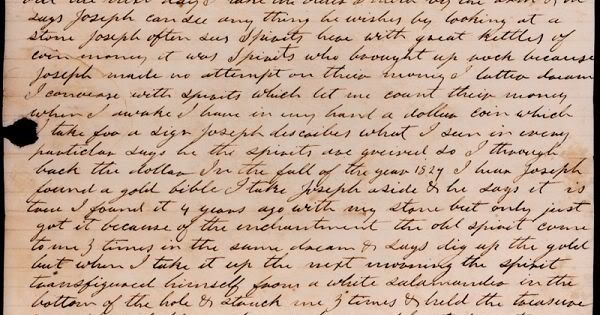 says Joseph can see any thing he wishes by looking at a
stone Joseph often sees Spirits here with great kettles of
coin money it was Spirits who brought up rock because
Joseph made no attempt on their money I latter dream
I converse with spirits which let me count their money
when I awake I have in my hand a dollar coin which
I take for a sign Joseph describes what I seen in every
particular says he the spirits are greived so I through
back the dollar In the fall of the year 1827 I hear Joseph
found a gold bible I take Joseph aside & he says it is
true I found it 4 years ago with my stone but only just
got it because of the enchantment the old spirit come
to me 3 times in the same dream & says dig up the gold
but when I take it up the next morning the spirit
transfigured himself from a white salamander in the
bottom of the hole & struck me 3 times & held the treasure